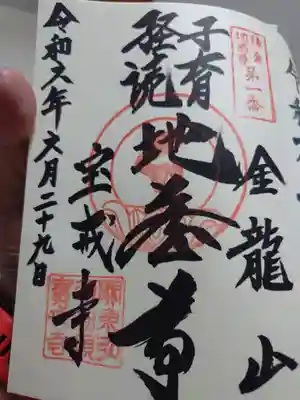 第一番
金龍山
子育
経読
地蔵尊
宝戒寺
令和六年六月二十九日